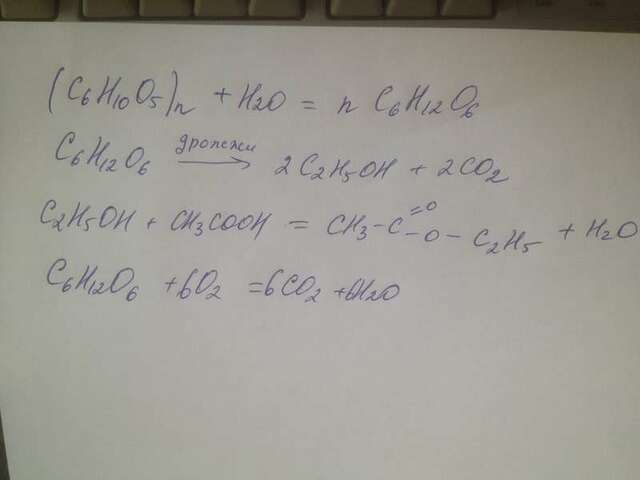 (C6H10O5)n + H2O = n C6H12O6
C6H12O6 дрожжи → 2C2H5OH + 2CO2
C2H5OH + CH3COOH = CH3-C=O-O-C2H5 + H2O
C6H12O6 +6O2 =6CO2 +6H2O